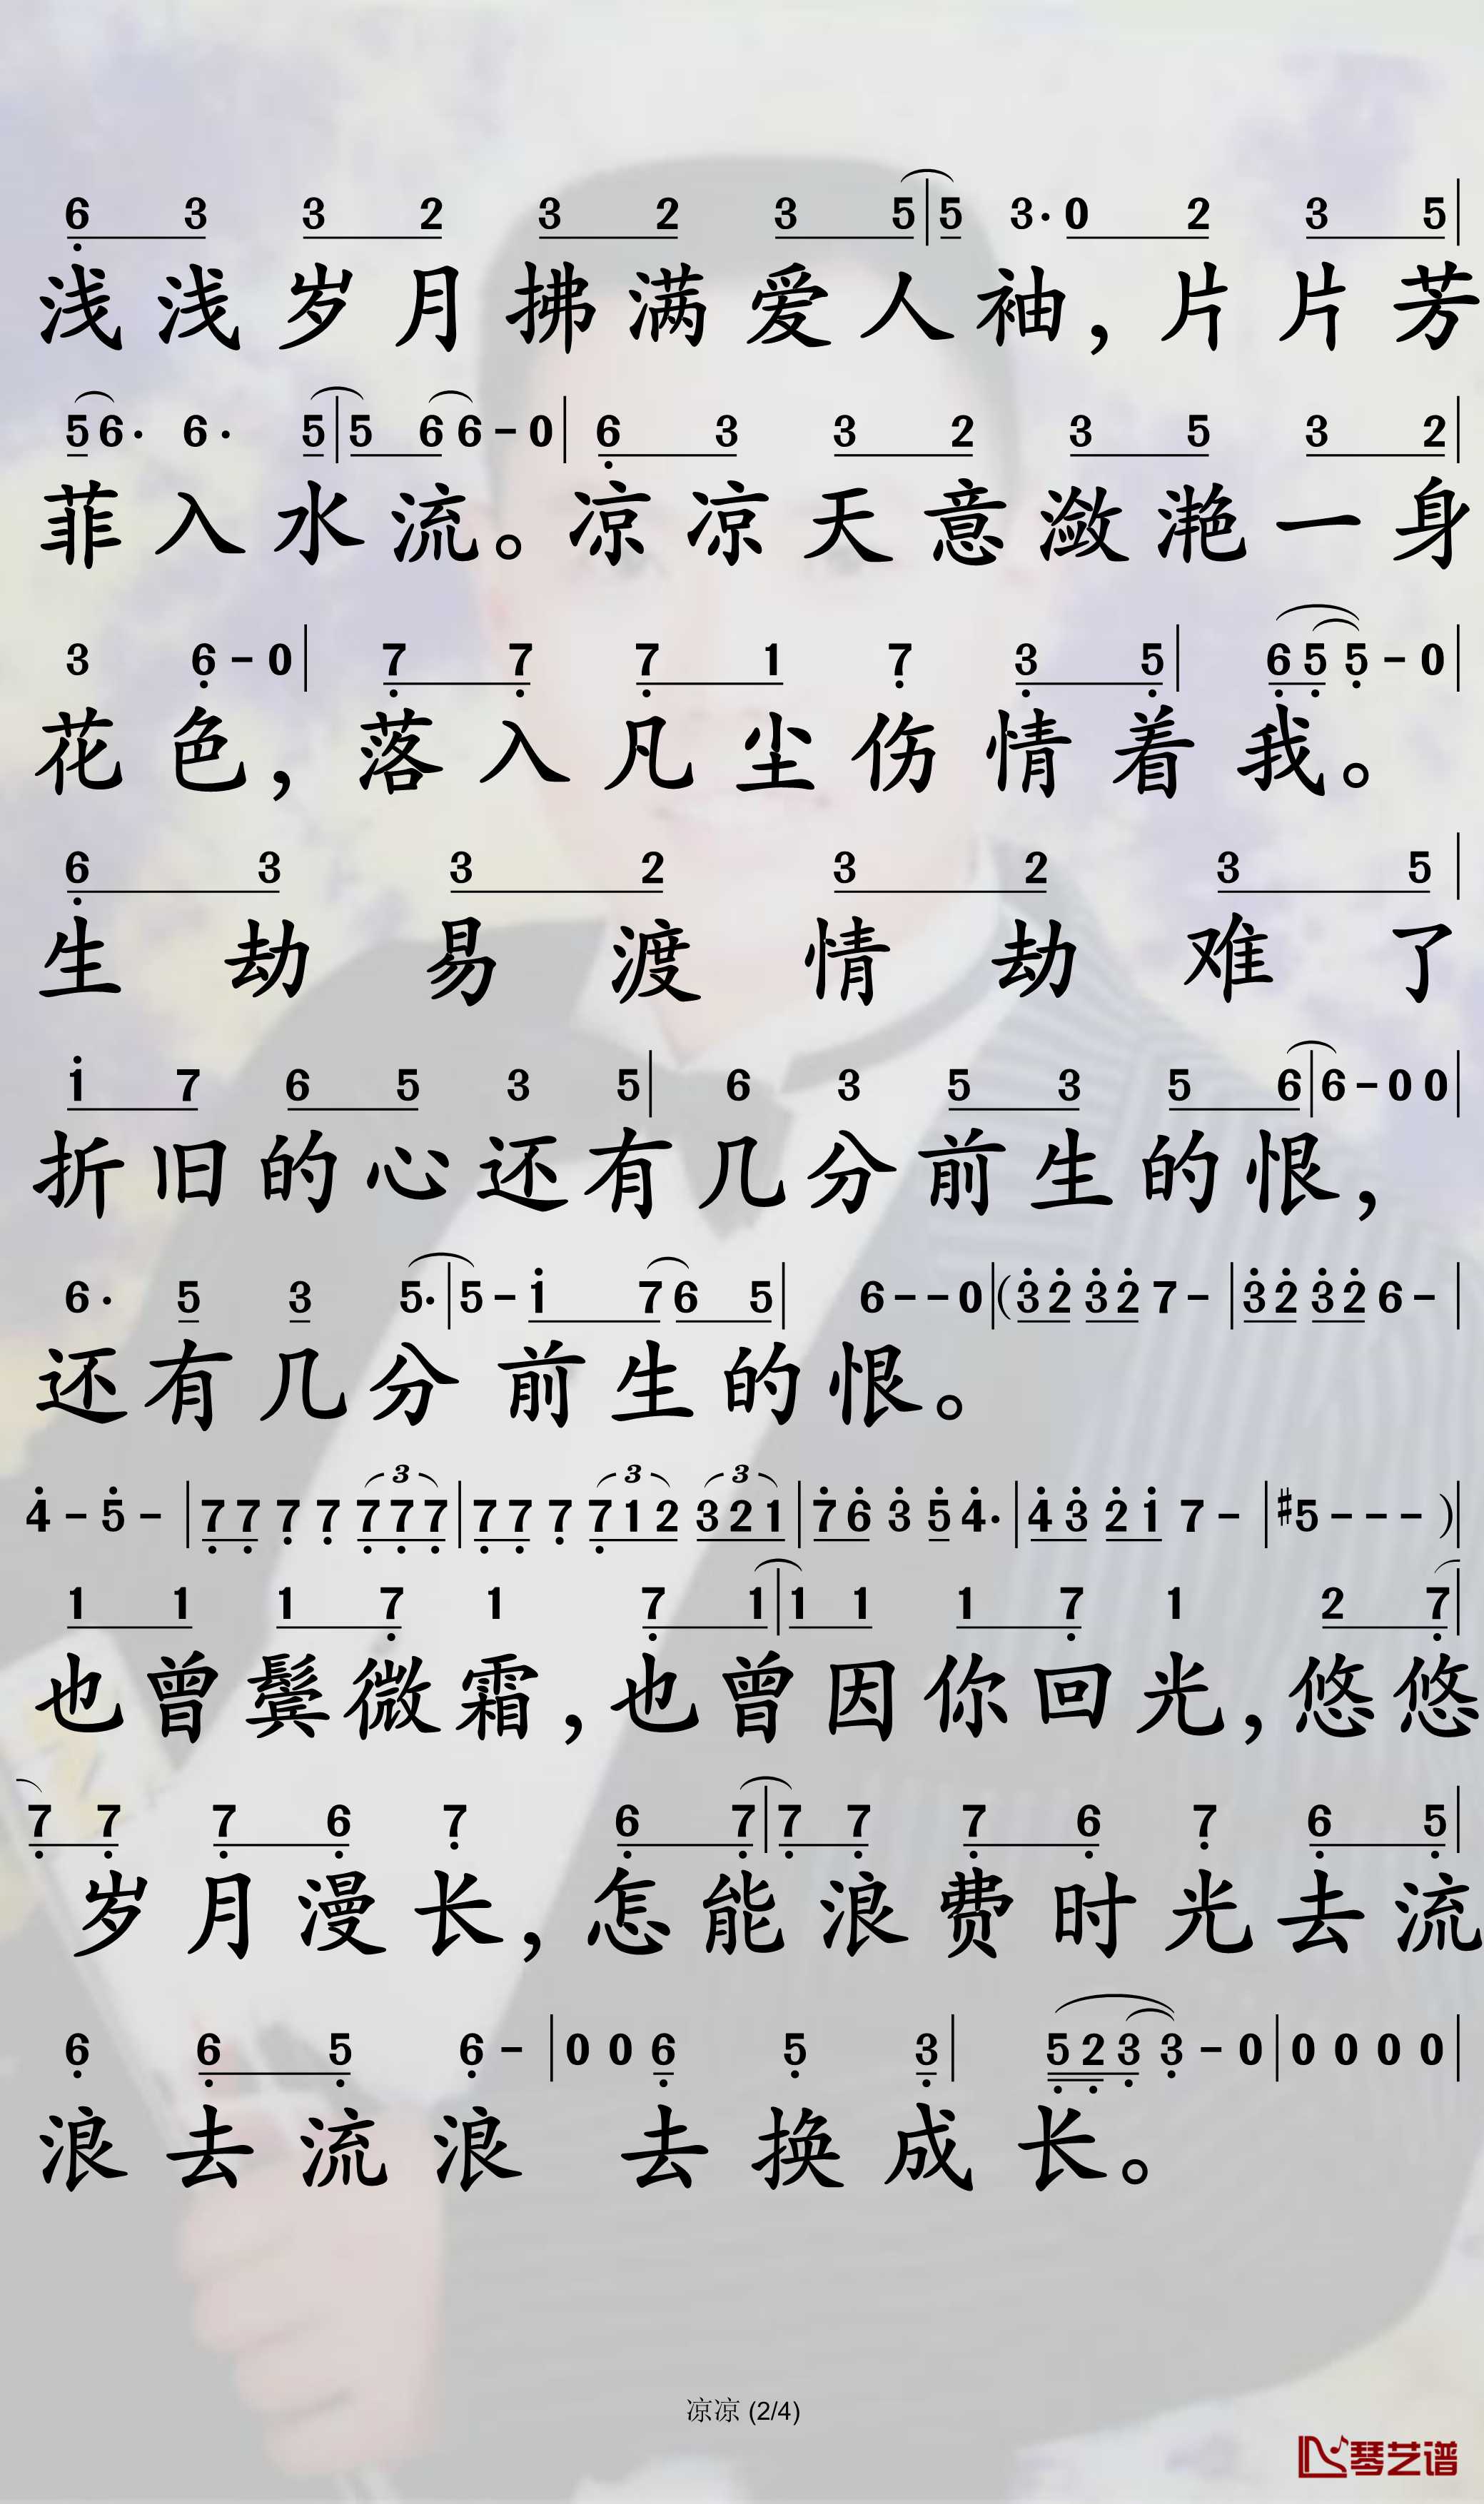 6 3 3 2 3 2 3 5|5 3·0 2 3 5|
浅浅岁月拂满爱人袖，片片芳
5 6· 6· 5|5 6 6 – 0| 6 3 3 2 3 5 3 2|
菲入水流。凉凉天意潋滟一身
3 6 – 0| 7 7 7 1 7 3 5| 6 5 5 – 0|
花色，落入凡尘伤情着我。
6 3 3 2 3 2 3 5|
生劫易渡情劫难了
1 7 6 5 3 5| 6 3 5 3 5 6|6 – 0 0|
折旧的心还有几分前生的恨，
6· 5 3 5·|5 – 1 7 6 5| 6 – – 0|(3 2 3 2 7 – |3 2 3 2 6 – |
还有几分前生的恨。
4 – 5 – |7 7 7 7 3 7 7 7|7 7 7 3 7 1 2 3 3 2 1|7 6 3 5 4·|4 3 2 1 7 – |#5 – – – )|
1 1 1 7 1 7 1|1 1 1 7 1 2 7|
也曾鬓微霜，也曾因你回光，悠悠
7 7 7 6 7 6 7|7 7 7 6 7 6 5|
岁月漫长，怎能浪费时光去流
6 6 5 6 – |0 0 6 5 3| 5 2 3 3 – 0|0 0 0 0|
浪去流浪 去换成长。
凉凉 (2/4)
琴艺谱